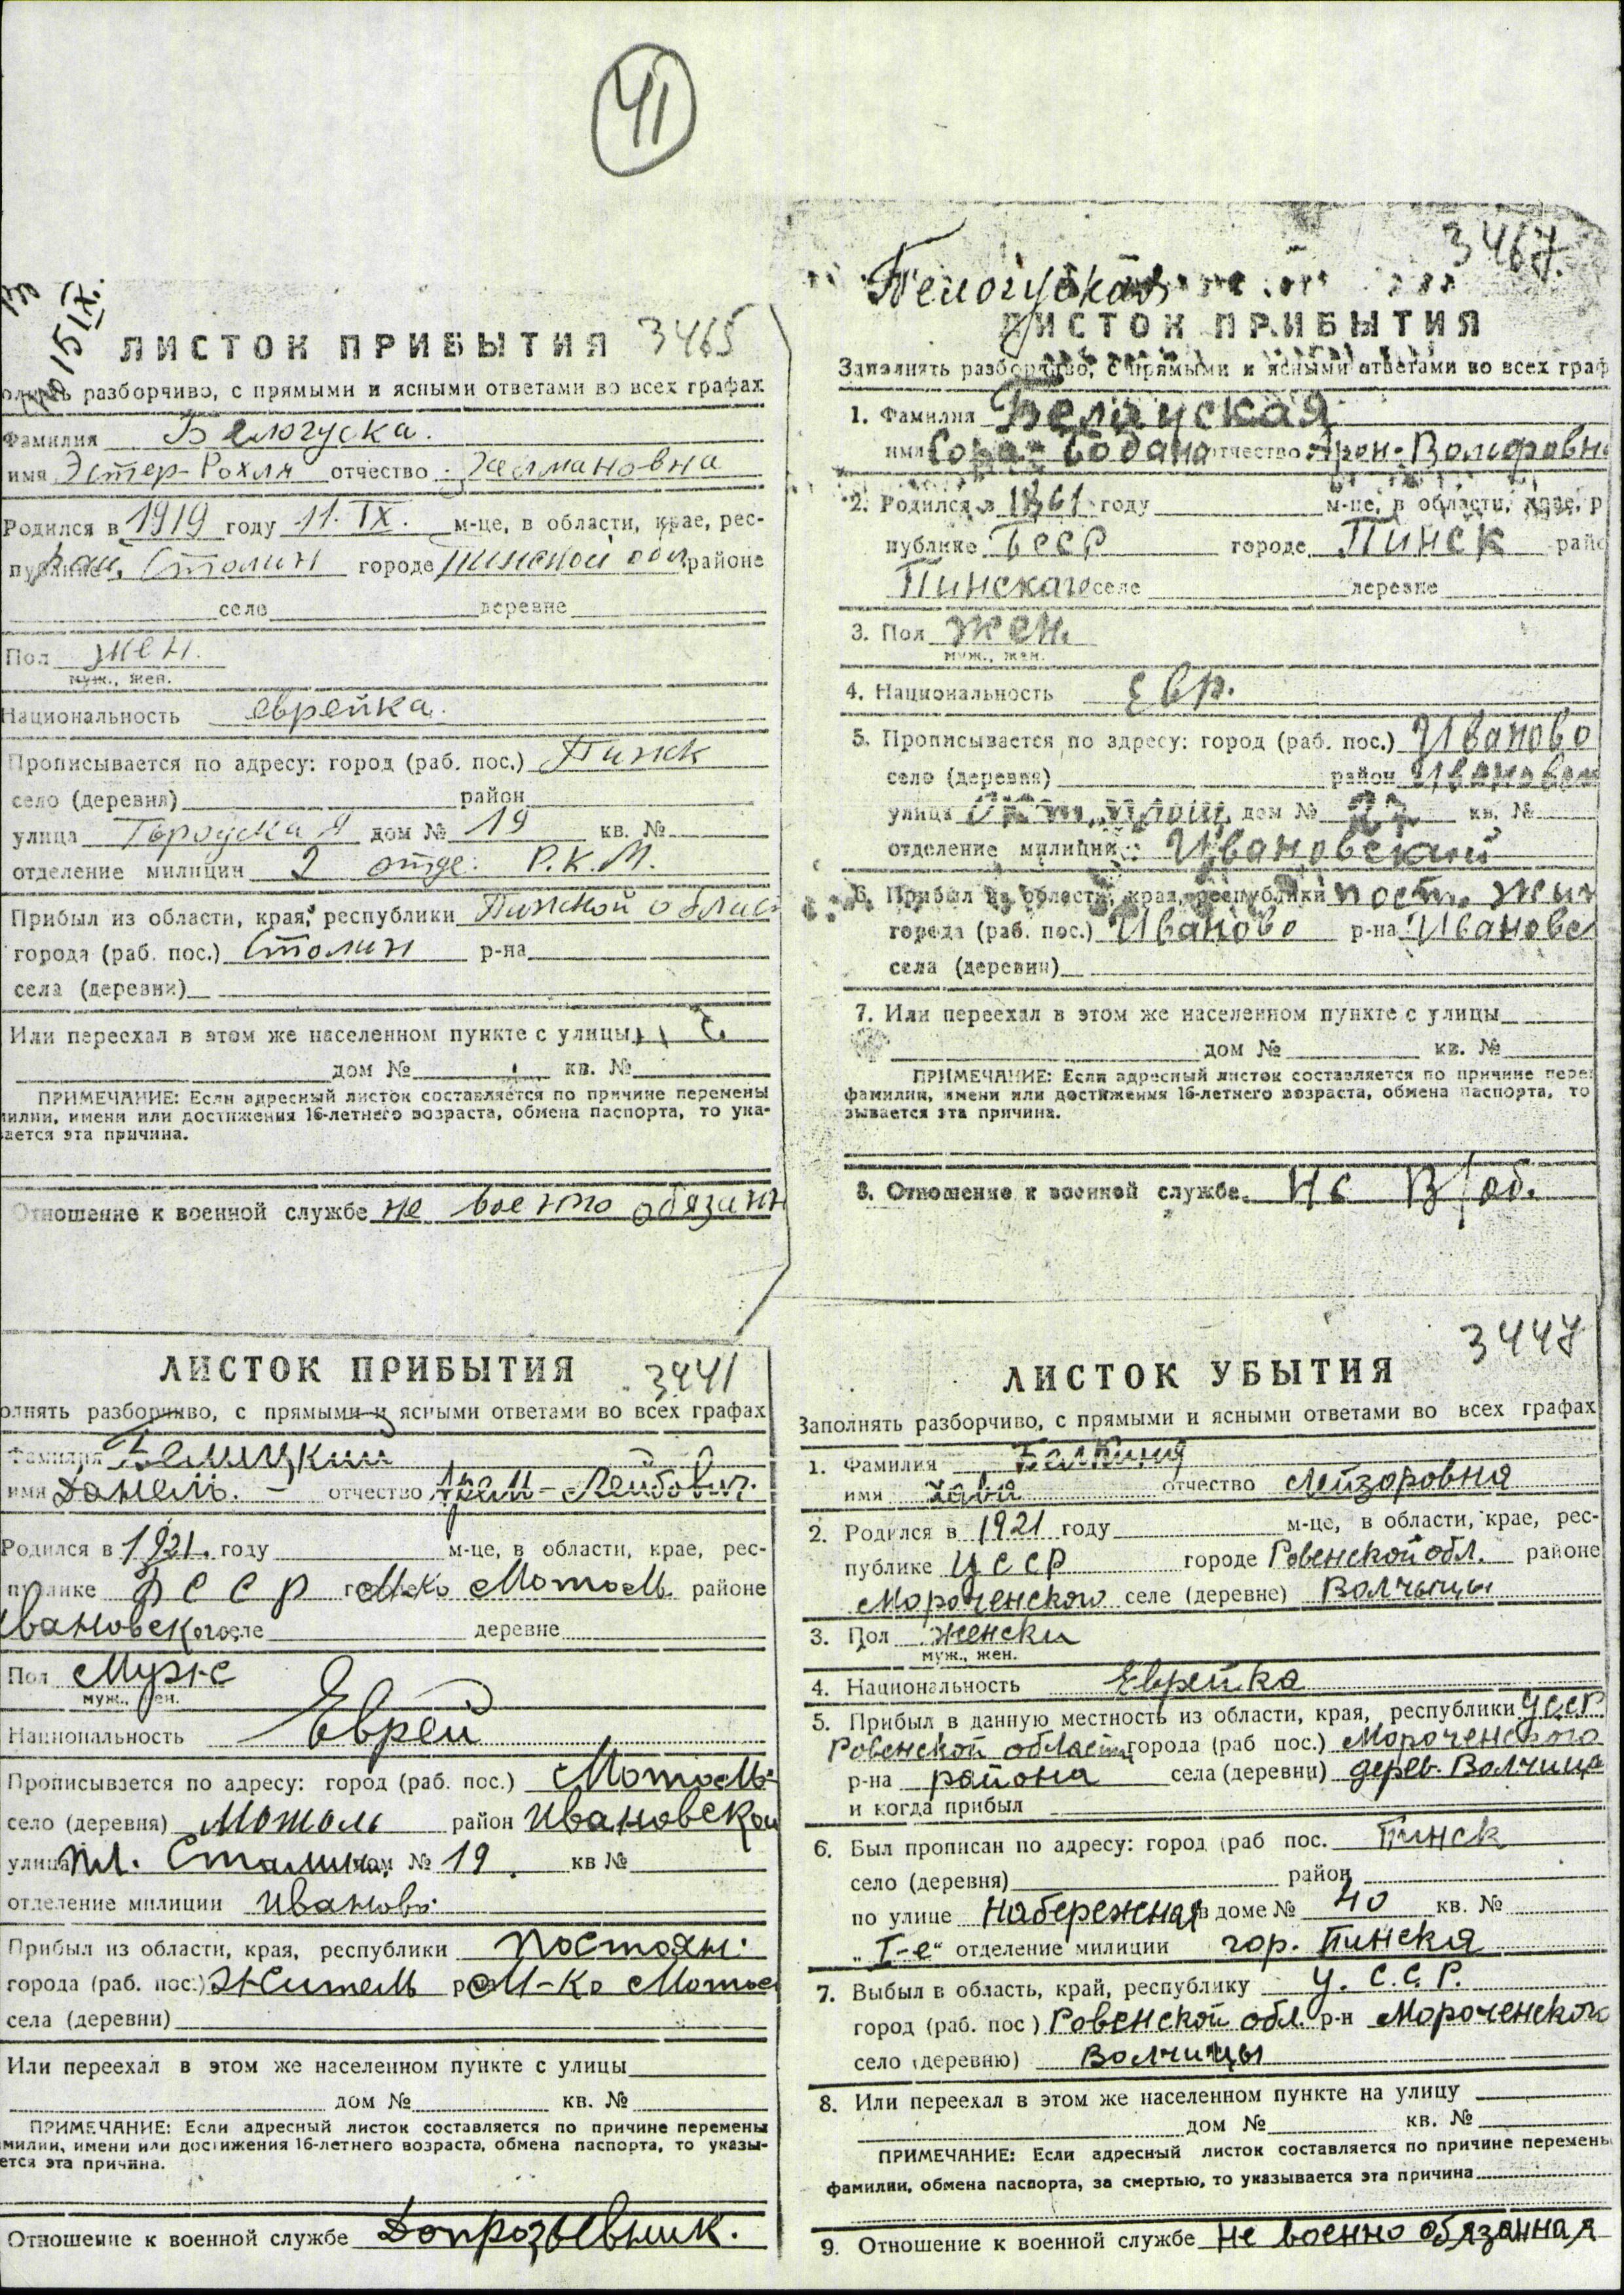 41
по 15 IX.
ЛИСТОК ПРИБЫТИЯ 3465
разборчиво, с прямыми и ясными ответами во всех графах
Фамилия Белогуска.
имя Эстер-Рохля отчество Залмановна
Родился в 1919 году 11. IX. м-це, в области, крае, рес-
публике рай. Столин городе Пинской обл. районе
село деревне
Пол жен.
муж., жен.
Национальность еврейка.
Прописывается по адресу: город (раб. пос.) Пинск
село (деревня) район
улица Городская дом № 19 кв. №
отделение милиции 2 отде: Р.К.М.
Прибыл из области, края, республики Пинской облас
города (раб. пос.) Столин р-на
села (деревни)
Или переехал в этом же населенном пункте с улицы
дом № кв. №
ПРИМЕЧАНИЕ: Если адресный листок составляется по причине перемены
милии, имени или достижения 16-летнего возраста, обмена паспорта, то ука-
вается эта причина.
Отношение к военной службе не военно обязанн
3467.
Белогуская
ЛИСТОК ПРИБЫТИЯ
Заполнять разборчиво, с прямыми и ясными ответами во всех граф
1. Фамилия Белагуская
имя Сора- отчество Арон-Вольфовн
2. Родился в 1861 году м-це, в области, крае, р
публике Бсср городе Пинск райо
Пинскаго селе деревне
3. Пол жен.
муж., жен.
4. Национальность Евр.
5. Прописывается по адресу: город (раб. пос.) Иваново
село (деревня) район Ивановск
улица Окт. площ. дом № 27 кв. №
отделение милиции: Ивановский
6. Прибыл из области, края, республики пост. жит
города (раб. пос.) Иваново р-на Ивановс
села (деревни)
7. Или переехал в этом же населенном пункте с улицы
дом № кв. №
ПРИМЕЧАНИЕ: Если адресный листок составляется по причине пере
фамилии, имени или достижения 16-летнего возраста, обмена паспорта, то
зывается эта причина.
8. Отношение к военной службе Не В/об.
ЛИСТОК ПРИБЫТИЯ 3441
олнять разборчиво, с прямыми и ясными ответами во всех графах
Фамилия Белицкий
имя Данель. - отчество -Лейбович.
Родился в 1921. году м-це, в области, крае, рес-
публике БССР м-ко Мотоль районе
Ивановского селе деревне
Пол Муж
муж., жен.
Национальность Еврей
Прописывается по адресу: город (раб. пос.) Мотоль
село (деревня) Мотоль район Ивановской
улица пл. Сталина дом № 19. кв №
отделение милиции Иваново.
Прибыл из области, края, республики Постоян.
города (раб. пос.) Житель м-ко Мотол
села (деревни)
Или переехал в этом же населенном пункте с улицы
дом № кв. №
ПРИМЕЧАНИЕ: Если адресный листок составляется по причине перемены
милии, имени или достижения 16-летнего возраста, обмена паспорта, то указы-
ется эта причина.
Отношение к военной службе Допрозывник.
3447
ЛИСТОК УБЫТИЯ
Заполнять разборчиво, с прямыми и ясными ответами во всех графах
1. Фамилия Белкиня
имя Хавя отчество Лейзоровня
2. Родился в 1921 году м-це, в области, крае, рес-
публике УССР городе Ровенской обл. районе
Мороченского селе (деревне) Волчыцы
3. Пол женски
муж., жен.
4. Национальность Еврейка
5. Прибыл в данную местность из области, края, республики УССР
Ровенской области города (раб пос.) Мороченского
р-на района села (деревни) дерев. Волчица
и когда прибыл
6. Был прописан по адресу: город (раб пос. Пинск
село (деревня) район
по улице Набережная в доме № 40 кв. №
„I-е“ отделение милиции гор. Пинскя
7. Выбыл в область, край, республику У.С.С.Р.
город (раб. пос) Ровенской обл. р-н Мороченского
село (деревню) Волчицы
8. Или переехал в этом же населенном пункте на улицу
дом № кв. №
ПРИМЕЧАНИЕ: Если адресный листок составляется по причине перемены
фамилии, обмена паспорта, за смертью, то указывается эта причина
9. Отношение к военной службе Не военно обязанная